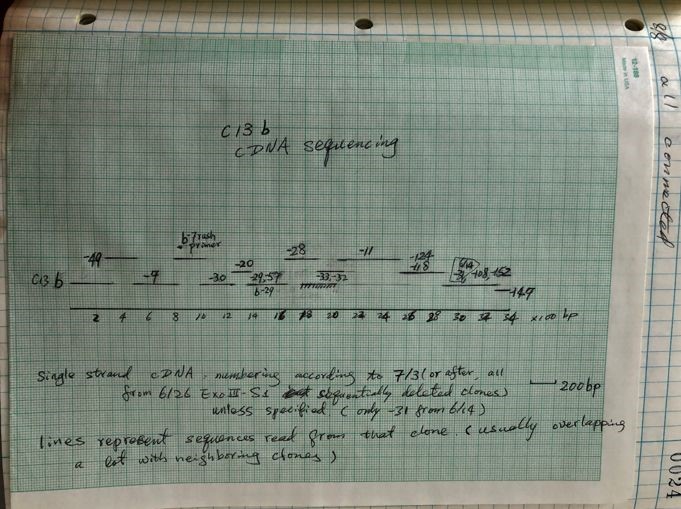 all connected
12-188
Made in USA
C13 b
cDNA sequencing
b-7 rash primer
-49
-20
-28
-11
-124
-118
C13 b
-9
-30
-29,57
b-29
-33,-32
-108,-152
-147
2 4 6 8 10 12 14 16 18 20 22 24 26 28 30 32 34 x100 bp
Single strand cDNA. numbering according to 7/31 (or after, all
from 6/26 Exo III-S1 sequentially deleted clones)
unless specified (only -31 from 6/14)
200 bp
lines represent sequences read from that clone. (usually overlapping
a lot with neighboring clones)
0024